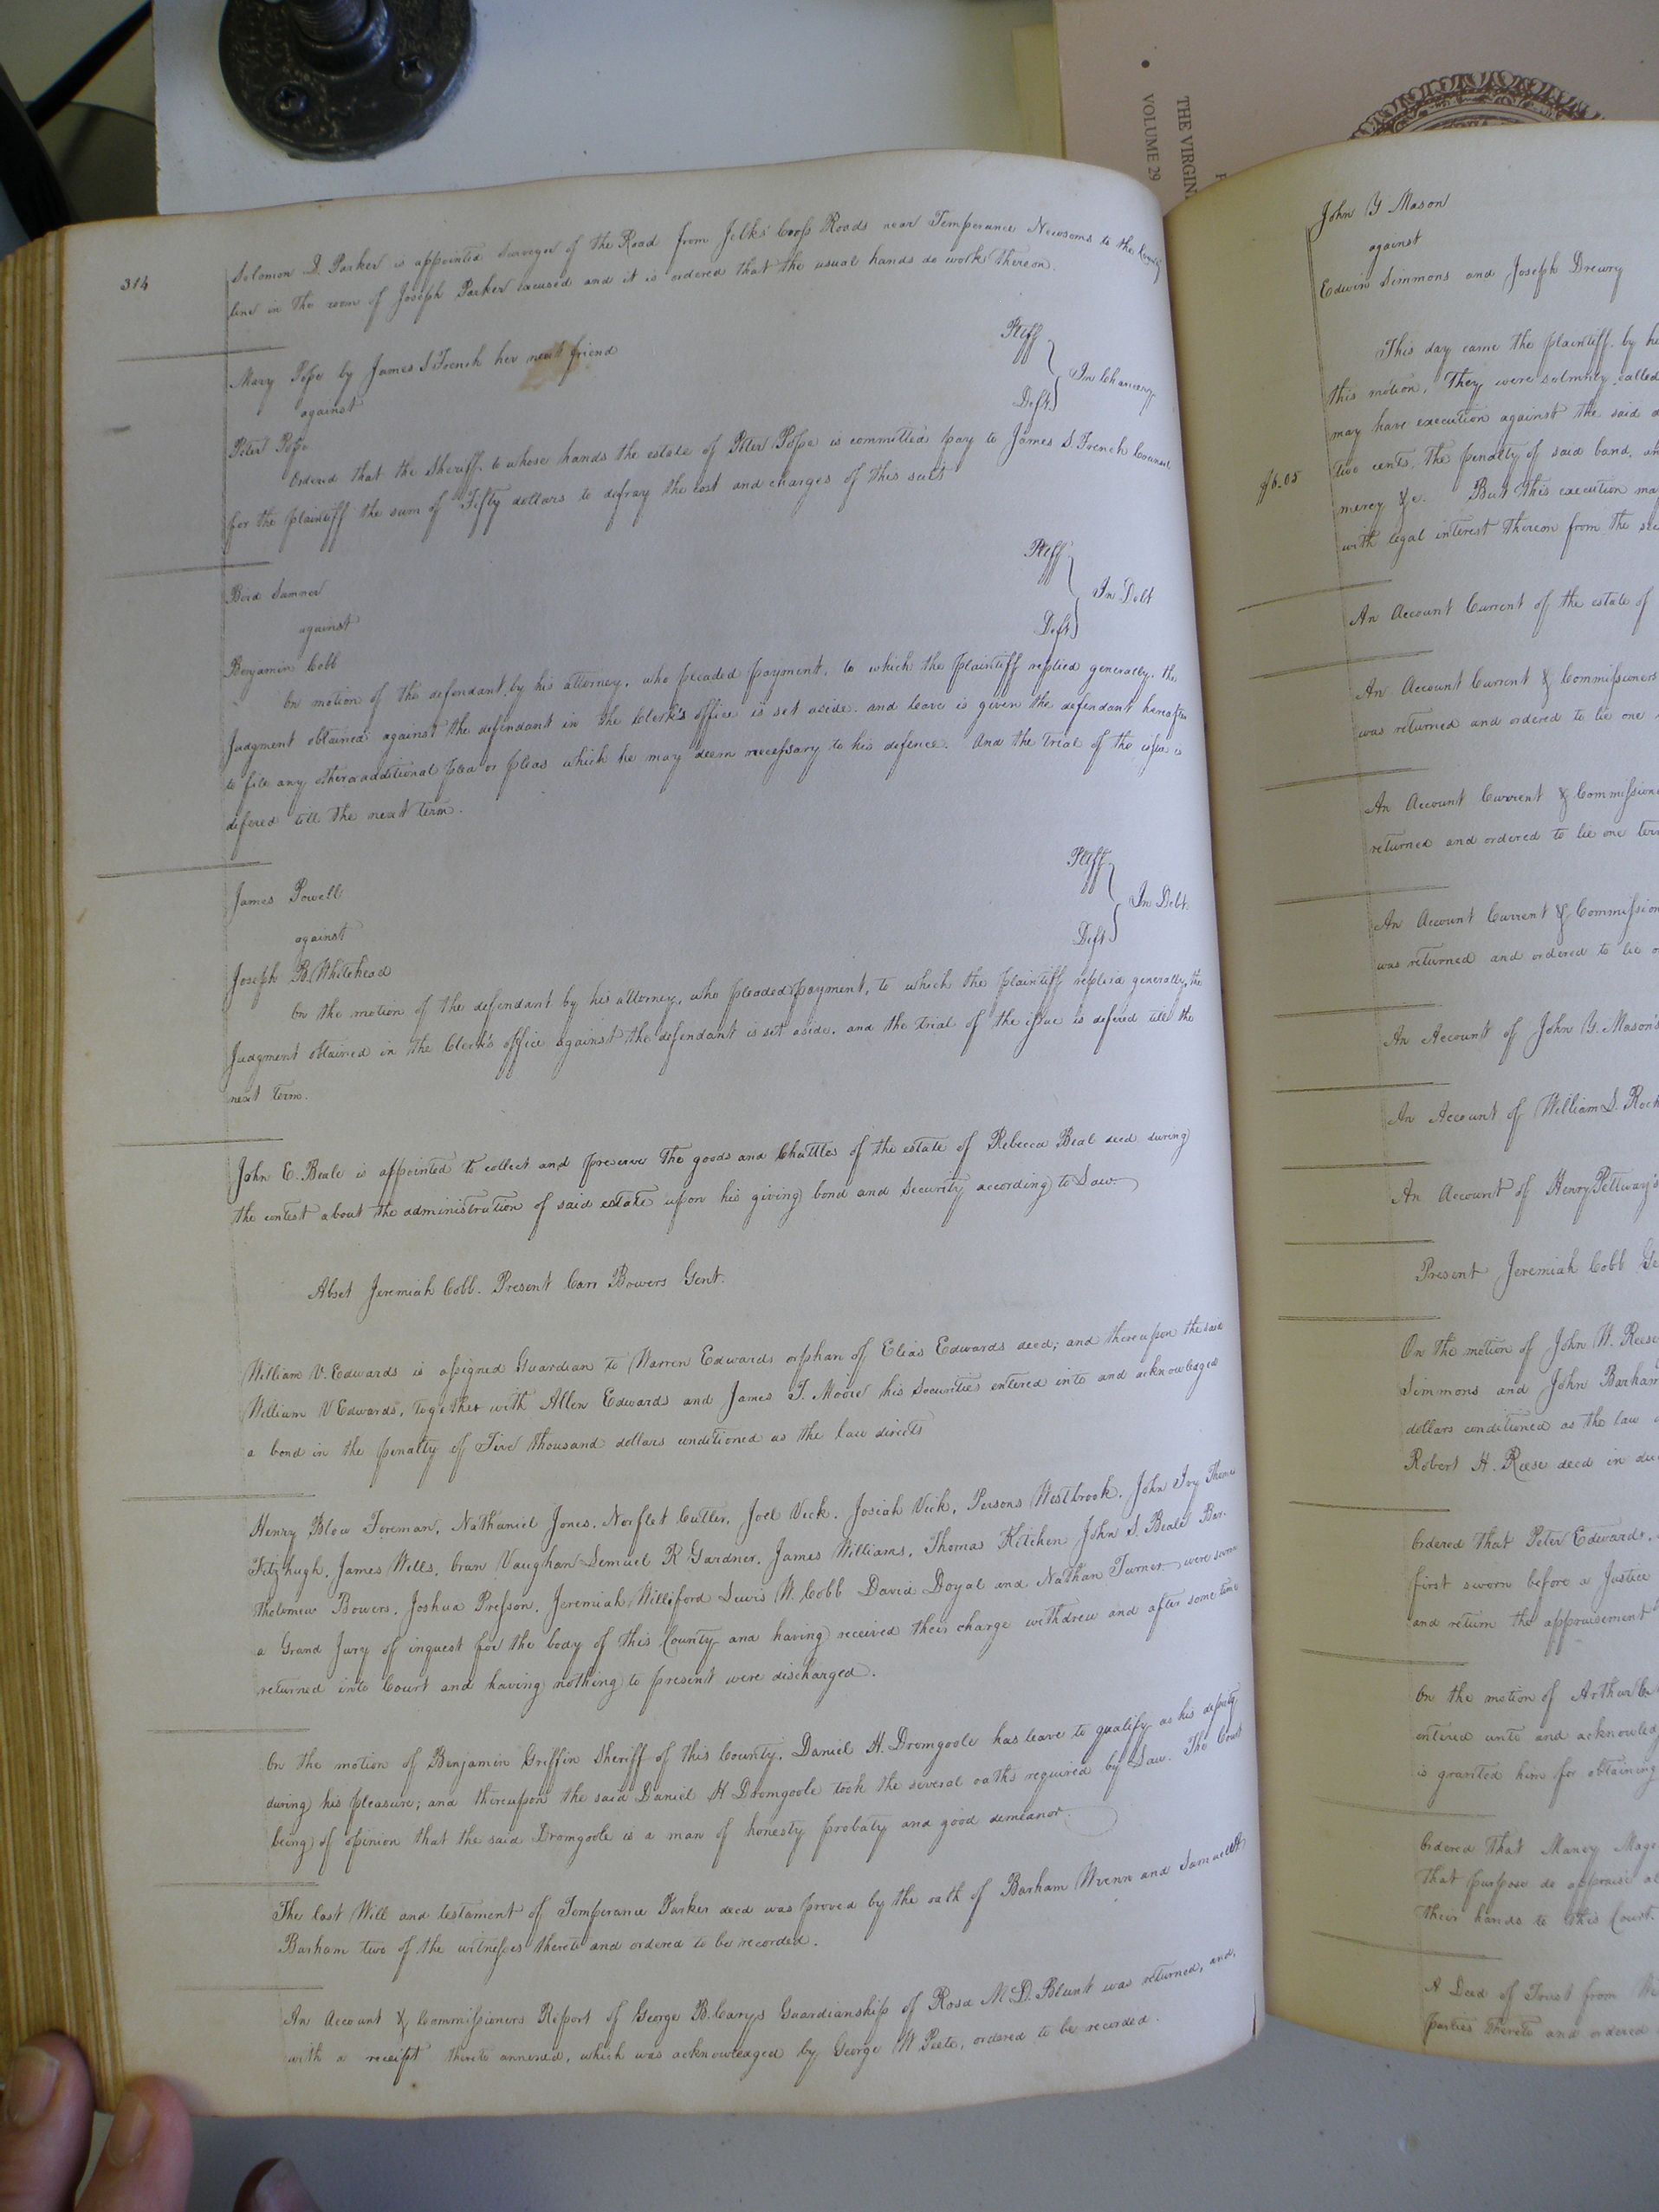 THE VIRGIN
VOLUME 29
314
Solomon D. Parker is appointed Surveyor of the Road from Jelks' Cross Roads near Temperance Newsoms to the County
line in the room of Joseph Parker excused and it is ordered that the usual hands do work thereon.
Mary Pope by James S French her next friend Pltff
against In Chancery
Peter Pope Deft
Ordered that the Sheriff to whose hands the estate of Peter Pope is committed pay to James S French Counsel
for the plaintiff the sum of Fifty dollars to defray the cost and charges of this suit
Sumner Pltff
against In Debt
Benjamin Cobb Deft
On motion of the defendant, by his attorney, who pleaded payment, to which the plaintiff replied generally. the
Judgment obtained against the defendant in the Clerk's office is set aside. and leave is given the defendant hereafter
to file any other additional plea or pleas which he may deem necessary to his defence. And the trial of the issue is
defered till the next term.
James Powell Pltff.
against In Debt.
Joseph B. Whitehead Deft
On the motion of the defendant by his attorney, who pleaded payment, to which the plaintiff replied generally, the
Judgment obtained in the Clerk's office against the defendant is set aside. and the trial of the issue is defered till the
next term.
John E. Beale is appointed to collect and preserve the goods and Chattles of the estate of Rebecca Beal decd during
the contest about the administration of said estate upon his giving bond and Security according to Law.
Abset Jeremiah Cobb. Present Carr Bowers Gent.
William V. Edwards is assigned Guardian to Warren Edwards orphan of Elias Edwards decd; and thereupon the said
William V Edwards, together with Allen Edwards and James T. Moore his Securities entered into and acknowledged
a bond in the penalty of Five thousand dollars conditioned as the law directs
Henry Blow Foreman, Nathaniel Jones, Norflet Cutler, Joel Vick, Josiah Vick, Persons Westbrook, John Ivy Thomas
Fitzhugh, James Wells, Vaughan Lemuel R Gardner, James Williams, Thomas Kitchen John S. Beale Bar-
tholomew Bowers, Joshua Presson, Jeremiah Williford Lewis W. Cobb David Doyal and Nathan Turner were sworn
a Grand Jury of inquest for the body of this County and having received their charge withdrew and after some time
returned into Court and having nothing to present were discharged.
On the motion of Benjamin Griffin Sheriff of this County, Daniel H. Dromgoole has leave to qualify as his deputy
during his pleasure; and thereupon the said Daniel H Dromgoole took the several oaths required by Law. The Court
being of opinion that the said Dromgoole is a man of honesty probaty and good demeanor.
The last Will and testament of Temperance Parker decd was proved by the oath of Barham Wrenn and Samuel
Barham two of the witnesses thereto and ordered to be recorded.
An Account & Commissioners Report of George B. Carys Guardianship of Rosa McD. Blunt was returned, and,
with a receipt thereto annexed, which was acknowledged by George W Peete, ordered to be recorded.
John Y Mason
against
Edwin Simmons and Joseph Drewry
This day came the plaintiff by
this motion, They were solmnly called
may have execution against the said
two cents, the penalty of said bond,
$6.05
mercy &c. But this execution may
with legal interest thereon from the
An Account Current of the estate of
An Account Current & Commissioners
was returned and ordered to lie one
An Account Current & Commission
returned and ordered to lie one
An Account Current & Commission
was returned and ordered to lie
An Account of John Y. Mason's
An Account of William S. Rock
An Account of Henry Pettway's
Present Jeremiah Cobb
On the motion of John W. Reese
Simmons and John Barham
dollars conditioned as the law
Robert H. Reese decd in
Ordered that Peter Edwards,
first sworn before a Justice
and return the appraisement
On the motion of Arthur
entered into and acknowled
is granted him for obtaining
Ordered that
that purpose do appraise
their hands to this Court.
A Deed of Trust from
parties thereto and ordered